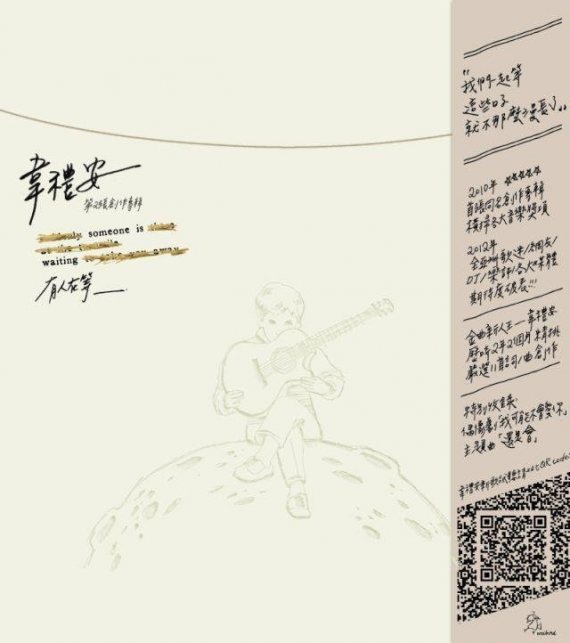 韋禮安
第2張創作專輯
someone is
waiting
有人在等__
"我們一起等
這些日子
就不那麼漫長了"
2010年 ☆☆☆☆☆
首張同名創作專輯
橫掃各大音樂獎項
2012年
全亞洲歌迷/網友/
DJ/樂評/各大媒體
期待度破表!!!
金曲新人王—韋禮安
歷時2年2個月精挑
嚴選11首詞/曲創作
特別收錄:
偶像劇「我可能不會愛你」
主題曲「還是會」
QR code: